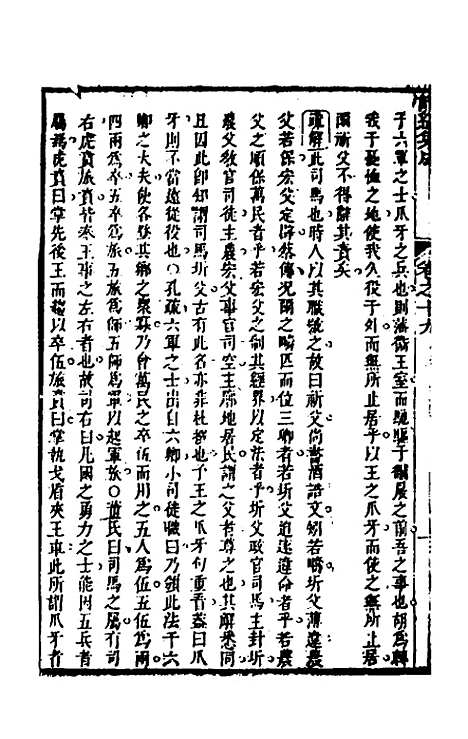 予六軍之士爪牙之兵也則藩衛王室而馳驅于禦侮之前吾之事也胡為轉
我于憂恤之地使我久役于外而無所止居乎以王之爪牙而使之無所止居
圻父不得辭其責矣
疏解此司馬也時人以其職號之故曰祈父尚書酒誥文矧若疇圻父薄違農
父若保宏父定辟蔡傳況爾之疇匹而位三卿者若圻父迫逐違命者乎若農
父之順保萬民者乎若宏父之制其經界以定法者乎圻父政官司馬主封圻
農父教官司徒主農宏父事官司空主廓地居民謂之父者尊之也其解悉同
且因此卽知謂司馬圻父古有此名亦非杜撰也予王之爪牙句重看蓋曰爪
牙則不當遠從役也孔疏六軍之士出自六鄉小司徒職曰乃頒此法于六
鄉之大夫使各登其鄉之衆寡乃會萬民之卒伍而用之五人爲伍五伍爲兩
四兩爲卒五卒爲旅五旅爲師五師爲軍以起軍旅董氏曰司馬之屬有司
右虎賁旅賁皆奉王事之左右者也故司右曰凡國之勇力之士能因五兵者
屬焉虎賁曰掌先後王而趨以卒伍旅賁曰掌執戈盾夾王車此所謂爪牙者
卷之十九